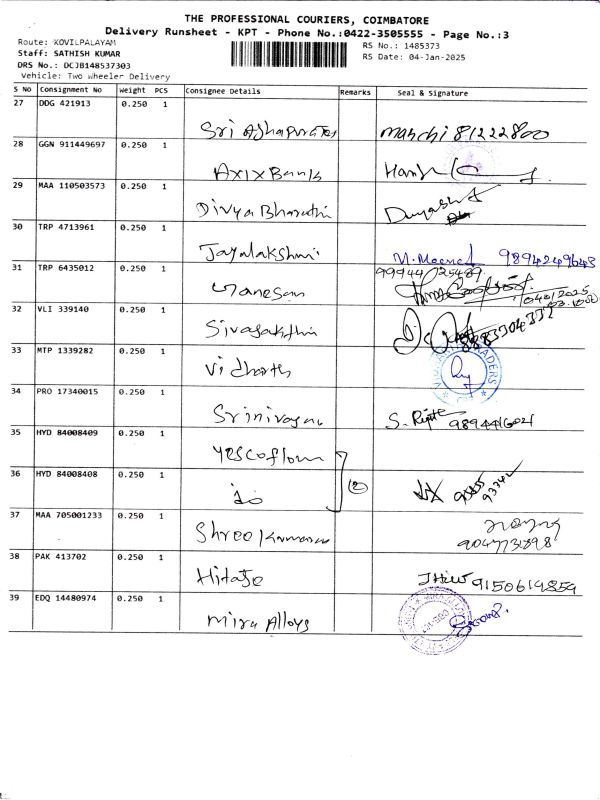 THE PROFESSIONAL COURIERS, COIMBATORE
Delivery Runsheet - KPT - Phone No.:0422-3505555 - Page No.:3
Route: KOVILPALAYAM
RS No.: 1485373
Staff: SATHISH KUMAR
RS Date: 04-Jan-2025
DRS No.: DCJB148537303
Vehicle: Two Wheeler Delivery
S No Consignment No Weight PCS Consignee Details Remarks Seal & Signature
27 DDG 421913 0.250 1
Sri
28 GGN 911449697 0.250 1
Axix Bank
29 MAA 110503573 0.250 1
Divya Bharathi
30 TRP 4713961 0.250 1
Jayalakshmi M. Meena 9894249643
31 TRP 6435012 0.250 1 99944 25489
Ganesan
32 VLI 339140 0.250 1
Sivasakthi
33 MTP 1339282 0.250 1
Vidharth
34 PRO 17340015 0.250 1
Srinivasan S.
35 HYD 84008409 0.250 1
Yescoflow
36 HYD 84008408 0.250 1
do 2
37 MAA 705001233 0.250 1
Shree Kumaran
38 PAK 413702 0.250 1
Hitase 9150619859
39 EDQ 14480974 0.250 1
Mira Alloys